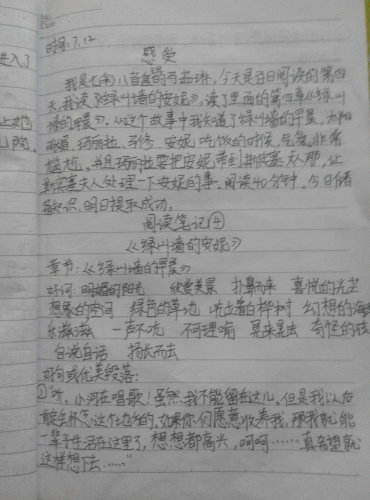 No:
Date
时间:7.12
感受
我是七彩八音盒 今天是百日阅读的第四
天,我读了《绿山墙的安妮》,读了里面的第四章《绿山
墙的早晨》。从这个故事中我知道了绿山墙的早晨,太阳
玛丽拉、马修、安妮吃饭的时候,气氛非常
尴尬,并且玛丽拉要把安妮带到斯宾塞夫人那,让
斯宾塞夫人处理一下安妮的事。阅读40分钟,今日储
备知识,明日提取成功。
阅读笔记④
《绿山墙的安妮》
章节:《绿山墙的早晨》
好词:明媚的阳光 欣赏美景 扑鼻而来 喜悦的光芒
想象的空间 绿色的草地 白桦树 幻想的海
乐滋滋 一声不吭 不理睬 晃来晃去 奇怪的孩
自说自话 扬长而去
好句或优美段落:
①"听,小河在唱歌!虽然我不能留在这儿,但是我以后
肯定会怀念这个地方的,如果你们愿意收养我,那我就能
一辈子生活在这里了,想想都高兴,呵呵……真希望就
这样想下去……"
进入了